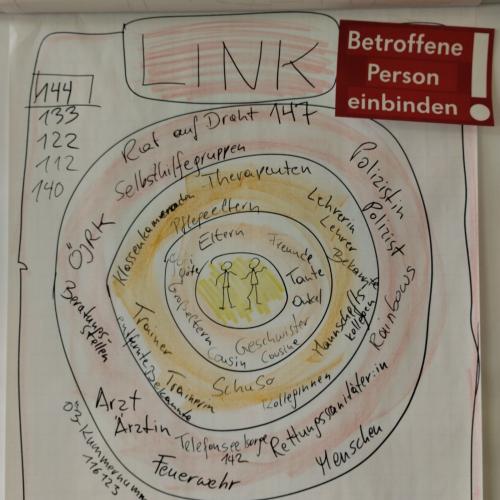 LINK
Betroffene
Person
einbinden
!
144
133
122
112
140
Rat auf Draht 147
Selbsthilfegruppen
Therapeuten
Klassenkameraden
Pflegeeltern
Eltern
Freunde
Tante
Onkel
Geschwister
Cousin
Cousine
Großeltern
Lehrerin
Lehrer
Bekannte
Mannschafts-
kollegen
Kolleginnen
SchuSo
Trainerin
Trainer
entfernte Bekannte
Polizistin
Polizist
Rainbows
Rettungssanitäter:in
Menschen
Telefonseelsorge
142
Feuerwehr
Arzt
Ärztin
Beratungs-
stellen
ÖJRK
Ö3 Kummernummer
116123